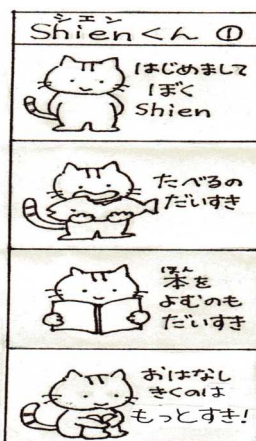 シエン
Shienくん ①
はじめまして
ぼく
Shien
たべるの
だいすき
ほん
本を
よむのも
だいすき
おはなし
きくのは
もっとすき!